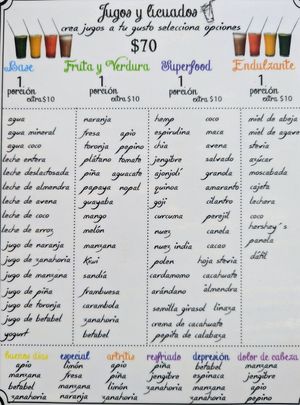 Jugos y licuados
crea jugos a tu gusto selecciona opciones
$70
Base Fruta y Verdura Superfood Endulzante
1 1 1 1
porción porción porción porción
extra $10 extra $10 extra $10 extra $10
agua naranja hemp coco miel de abeja
agua mineral fresa apio espirulina maca miel de agave
agua coco toronja pepino chia avena stevia
leche entera plátano tomate jengibre salvado azúcar
leche deslactosada piña aguacate ajonjolí granola moscabada
leche de almendra papaya nopal quinoa amaranto cajeta
leche de avena guayaba goji cilantro lechera
leche de coco mango curcuma perejil coco
leche de arroz melón nuez canela hershey´s
jugo de naranja manzana nuez india cacao panela
jugo de zanahoria kiwi polen hoja stevia dátil
jugo de manzana sandía cardamomo cacahuate
jugo de piña frambuesa arándano almendra
jugo de toronja carambola semilla girasol linaza
jugo de betabel zanahoria crema de cacahuate
yogurt betabel pepita de calabaza
buenos días especial artritis resfriado depresión dolor de cabeza
apio limón apio piña betabel manzana
manzana fresa piña jengibre manzana jengibre
betabel manzana limón espinaca naranja apio
zanahoria naranja zanahoria zanahoria zanahoria pepino